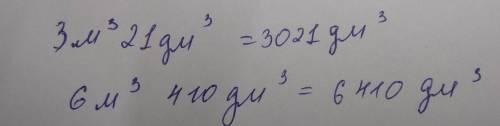 3 м³ 21 дм³ = 3021 дм³
6 м³ 410 дм³ = 6410 дм³